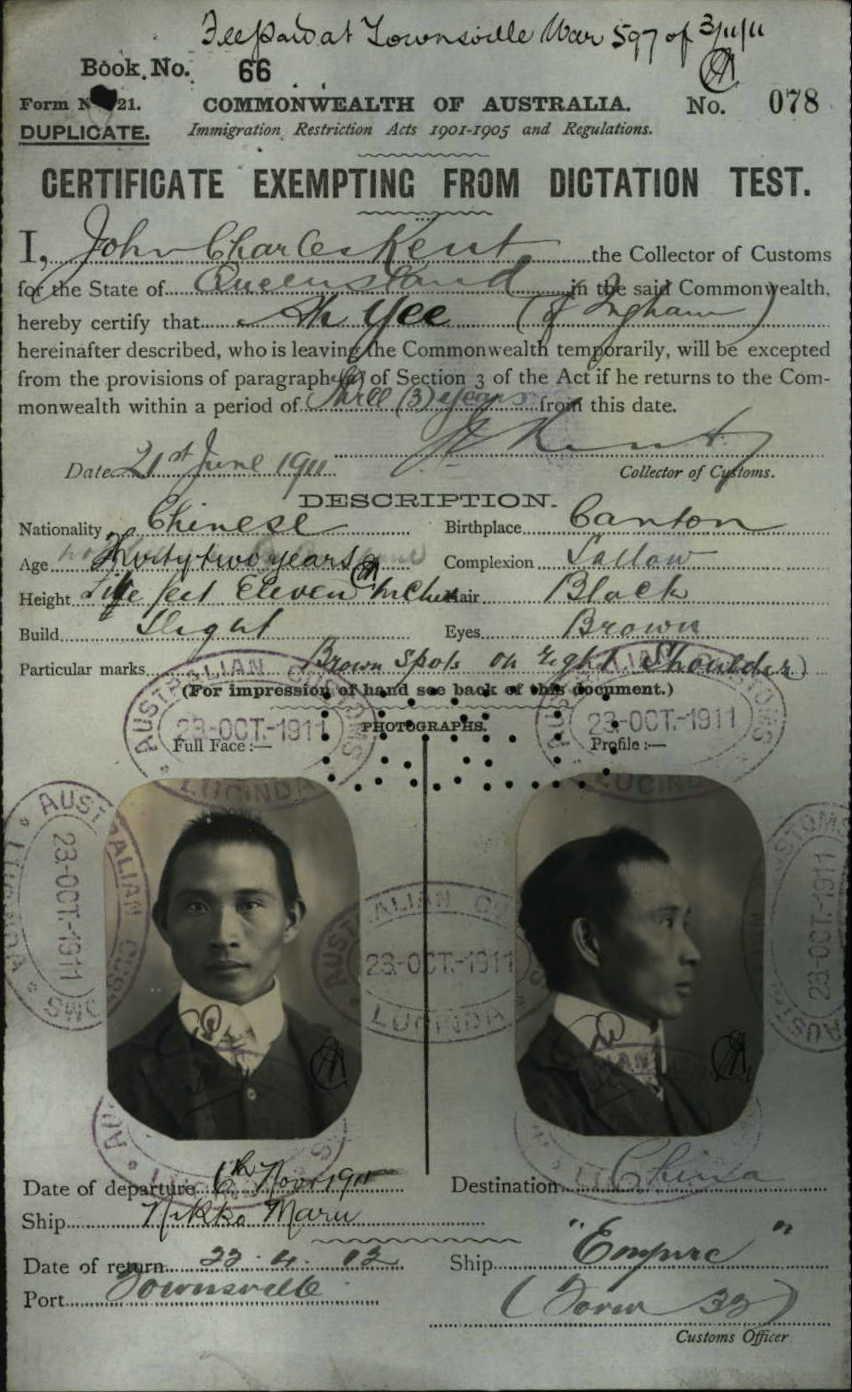 Fee Paid at Townsville War 597 of 3/11/11
Book No. 66
Form No 21. COMMONWEALTH OF AUSTRALIA. No. 078
DUPLICATE. Immigration Restriction Acts 1901-1905 and Regulations.
CERTIFICATE EXEMPTING FROM DICTATION TEST.
I, John Charles Kent the Collector of Customs
for the State of Queensland in the said Commonwealth,
hereby certify that Ah Yee (of Ingham)
hereinafter described, who is leaving the Commonwealth temporarily, will be excepted
from the provisions of paragraph (a) of Section 3 of the Act if he returns to the Com-
monwealth within a period of Three (3) years from this date.
Date 21st June 1911
Collector of Customs.
DESCRIPTION.
Nationality Chinese Birthplace Canton
Age Thirty two years Complexion Sallow
Height Five feet Eleven Inches Hair Black
Build Slight Eyes Brown
Particular marks Brown Spots on right Shoulder
(For impression of hand see back of this document.)
PHOTOGRAPHS.
Full Face :— Profile :—
AUSTRALIAN CUSTOMS
23-OCT.-1911
LUCINDA
AUSTRALIAN CUSTOMS
23-OCT.-1911
LUCINDA
AUSTRALIAN CUSTOMS
23-OCT.-1911
LUCINDA
AUSTRALIAN CUSTOMS
23-OCT.-1911
LUCINDA
CUSTOMS
23-OCT.-1911
AUS
Date of departure 6th Nov. 1911 Destination China
Ship Nikko Maru
Date of return 22.4.12 Ship "Empire"
Port Townsville (Form 32)
Customs Officer